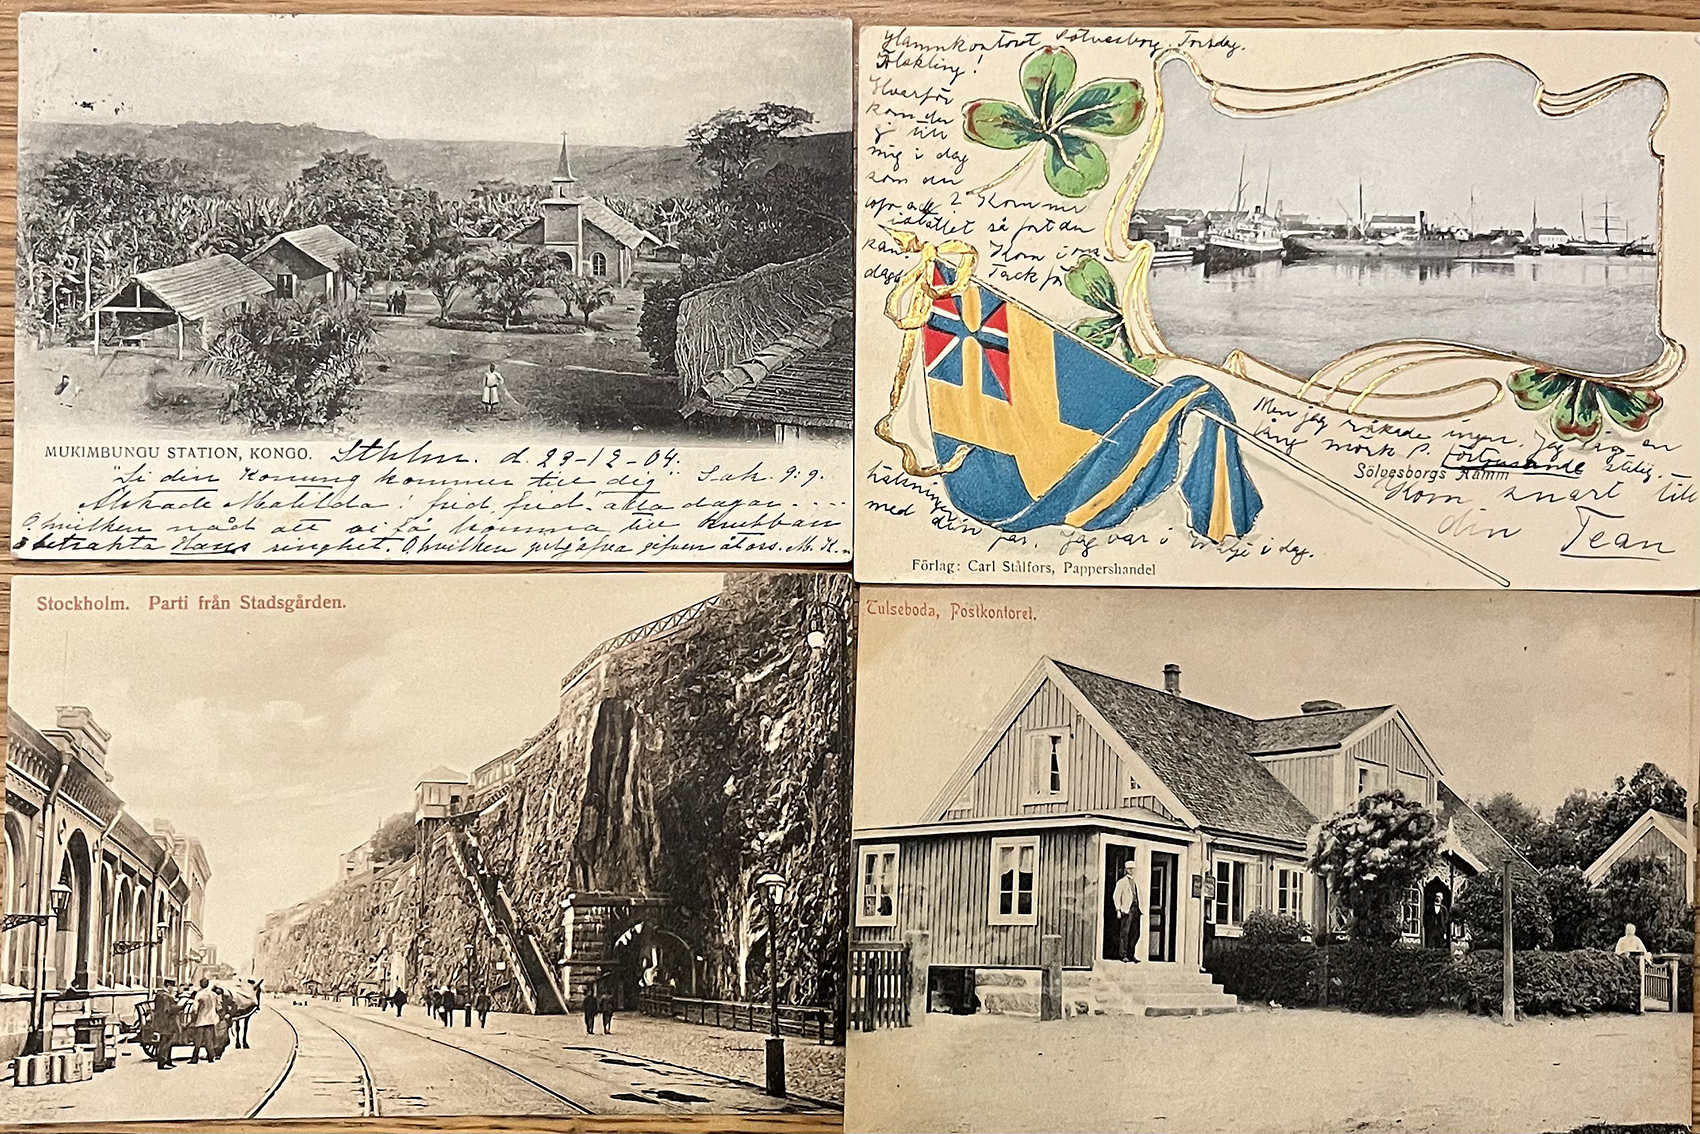 MUKIMBUNGU STATION, KONGO. Sthlm. d. 29-12-04.
"Si din Konung kommer till dig" Sak. 9:9.
Älskade Matilda! frid, frid! alla dagar....
O, hvilken nåd att vi få komma till Krubban
o betrakta Hans ringhet. O, hvilken gifven åt oss. M. K.
Sölvesborg, Torsdag.
Älskling!
Hvarför
kom du
ej till
mig i dag
som du
Kommer
i stället så fort du
kan. Kom i
dags Tack för
Men jag råkade ingen. Jag en
lång mörk P. förtjusande
Sölvesborgs Hamn
Kom snart till
din Jean
hälsningen
med din far. Jag var i i dag.
Förlag: Carl Stålfors, Pappershandel
Stockholm. Parti från Stadsgården.
Tulseboda, Postkontoret.